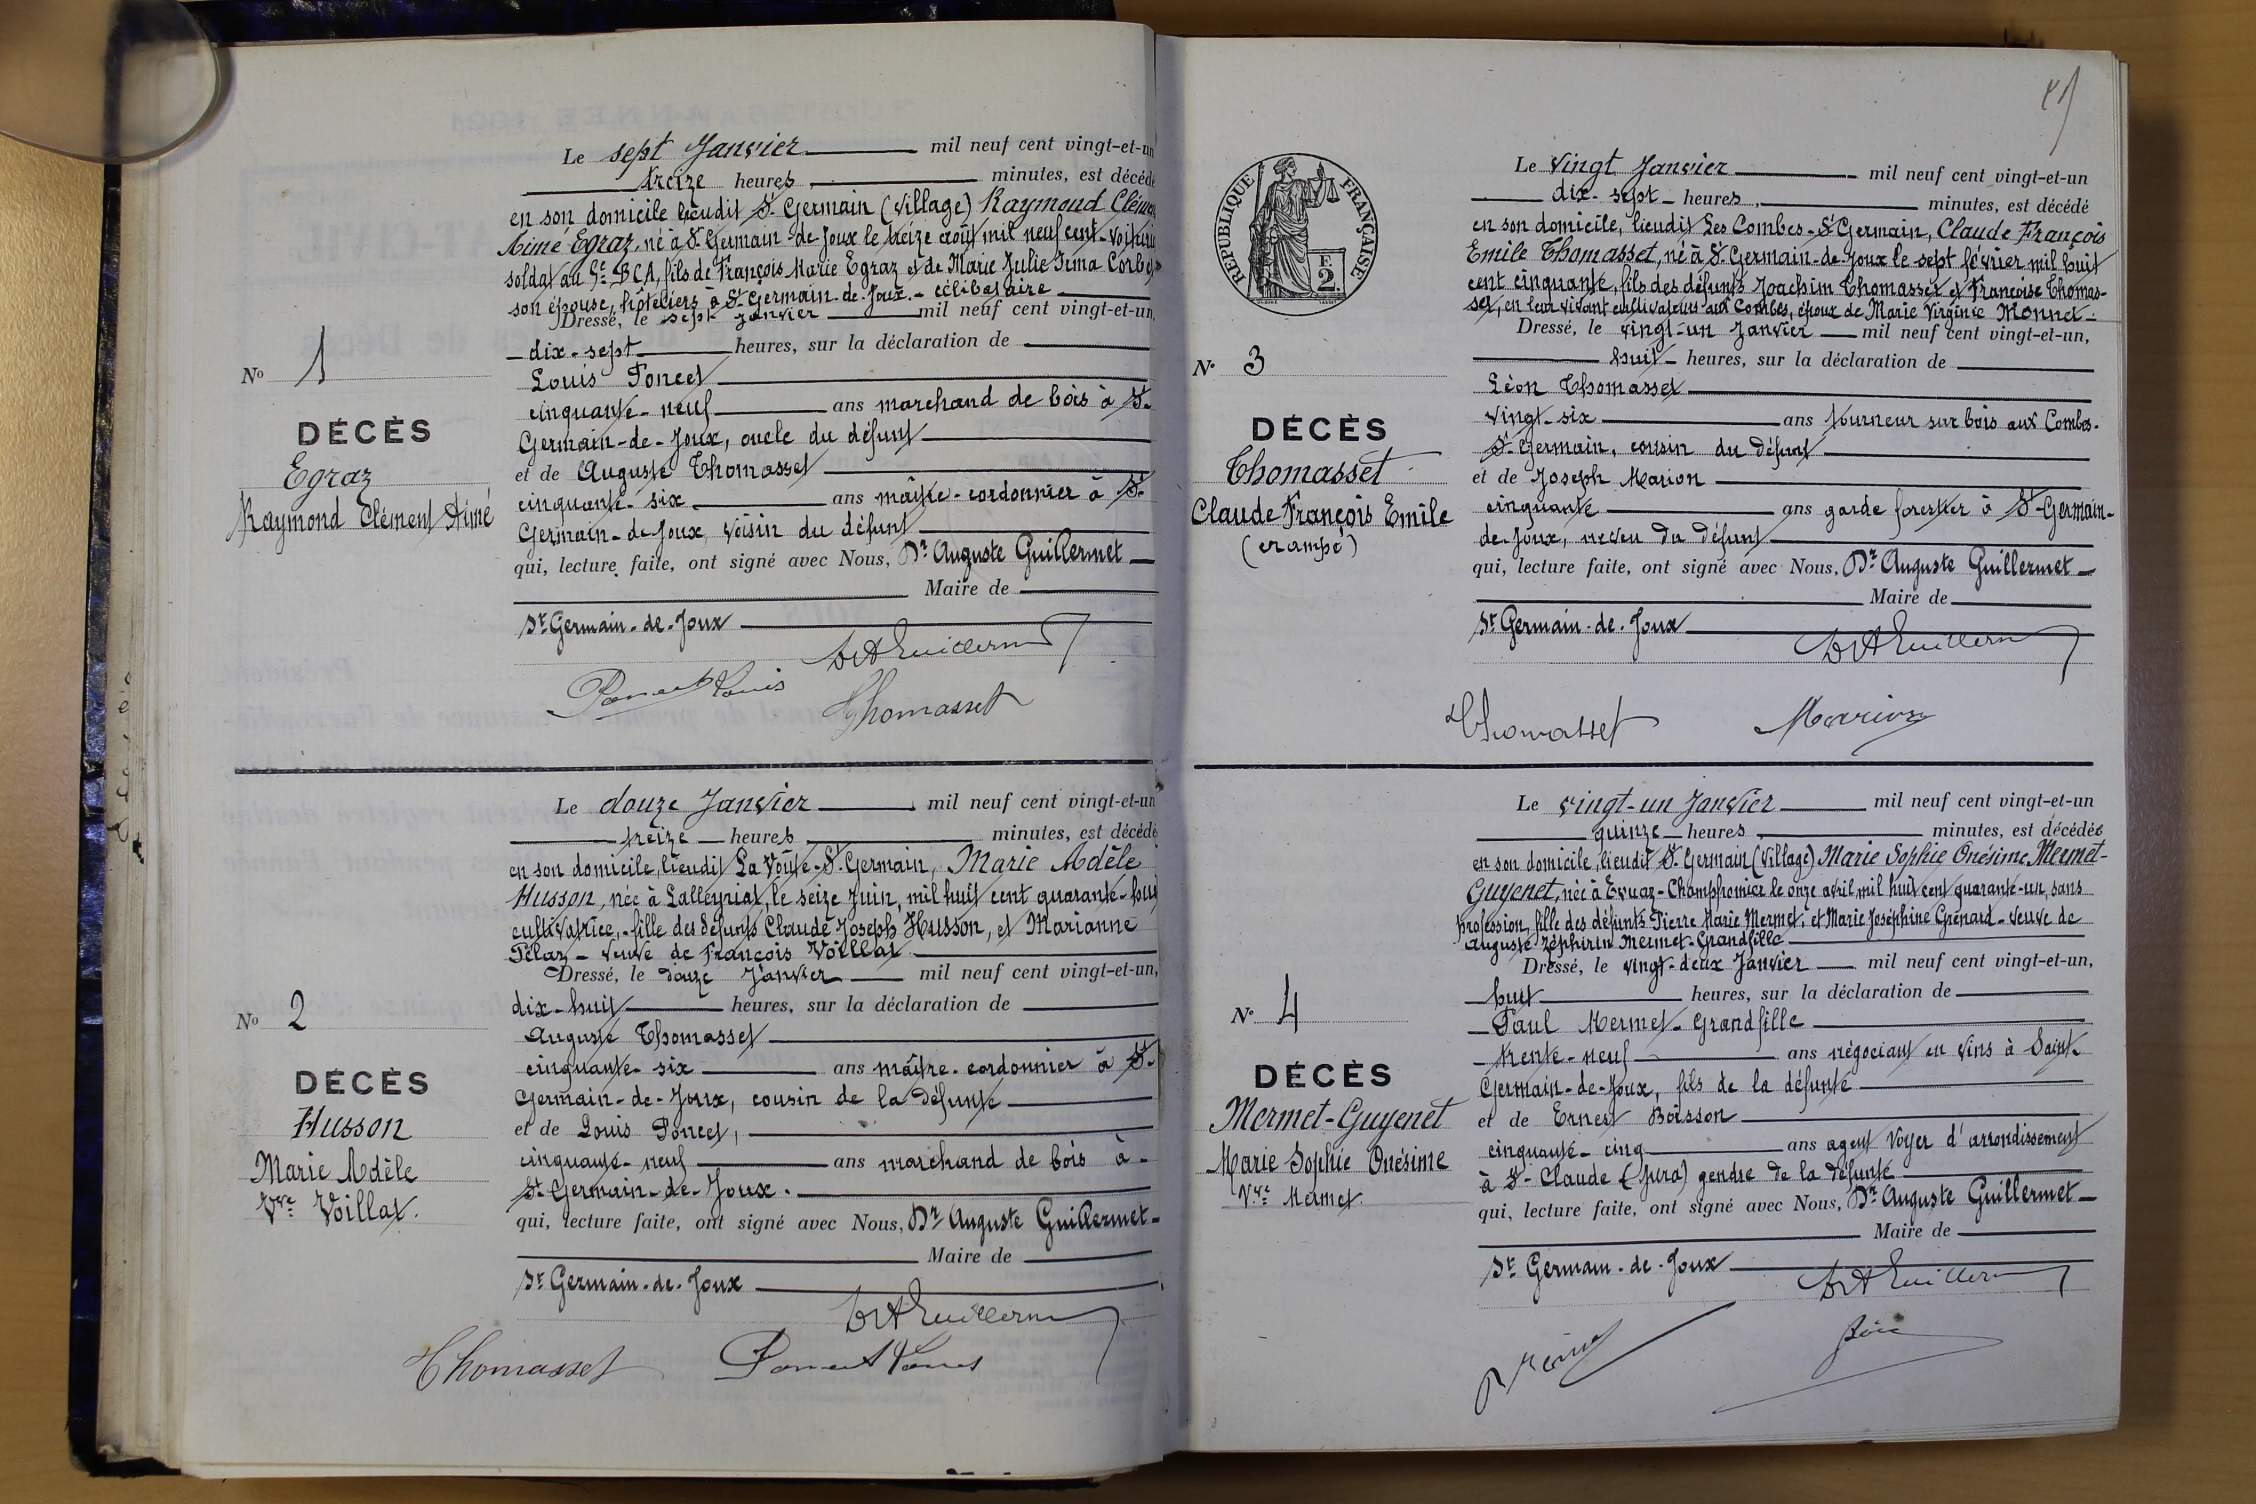 Le sept Janvier mil neuf cent vingt-et-un
treize heures minutes, est décédé
en son domicile lieudit St Germain (Village) Raymond Clémen
Aimé Egraz, né à St Germain-de-Joux le treize août mil neuf cent - voiturie
soldat au BCA, fils de François Marie Egraz et de Marie Julie Irma Corbe
son épouse, hôteliers à St Germain-de-Joux. - célibataire
Dressé, le sept janvier mil neuf cent vingt-et-un,
dix-sept heures, sur la déclaration de
Louis Poncet
cinquante-neuf ans marchand de bois à St-
Germain-de-Joux, oncle du défunt
et de Auguste Thomasset
cinquante-six ans maître-cordonnier à St-
Germain-de-Joux, voisin du défunt
qui, lecture faite, ont signé avec Nous, Dr Auguste Guillermet
Maire de
St Germain-de-Joux
DrAGuillermet
Poncet Louis
Thomasset
No 1
DÉCÈS
Egraz
Raymond Clément Aimé
Le douze Janvier mil neuf cent vingt-et-un
treize heures minutes, est décédé
en son domicile, lieudit La Voûte-St Germain, Marie Adèle
Husson, née à Lalleyriat, le seize Juin, mil huit cent quarante-huit
cultivatrice, - fille des défunts Claude Joseph Husson, et Marianne
Pélaz - veuve de François Voillat
Dressé, le douze Janvier mil neuf cent vingt-et-un,
dix-huit heures, sur la déclaration de
Auguste Thomasset
cinquante-six ans maître-cordonnier à St-
Germain-de-Joux, cousin de la défunte
et de Louis Poncet,
cinquante-neuf ans marchand de bois à -
St Germain-de-Joux.
qui, lecture faite, ont signé avec Nous, Dr Auguste Guillermet
Maire de
St Germain-de-Joux
DrAGuillermet
Thomasset
Poncet Louis
No 2
DÉCÈS
Husson
Marie Adèle
Vve Voillat.
RÉPUBLIQUE FRANÇAISE
F
2
Le vingt Janvier mil neuf cent vingt-et-un
dix-sept heures, minutes, est décédé
en son domicile, lieudit Les Combes-St Germain, Claude François
Emile Thomasset, né à St Germain-de-Joux le sept février mil huit
cent cinquante, fils des défunts Joachim Thomasset et Françoise Thomas-
set, en leur vivant cultivateurs aux Combes, époux de Marie Virginie Monnet.
Dressé, le vingt-un Janvier mil neuf cent vingt-et-un,
huit heures, sur la déclaration de
Léon Thomasset
vingt-six ans tourneur sur bois aux Combes-
St Germain, cousin du défunt
et de Joseph Marion
cinquante ans garde forestier à St-Germain-
de-Joux, neveu du défunt
qui, lecture faite, ont signé avec Nous, Dr Auguste Guillermet
Maire de
St Germain-de-Joux
DrAGuillermet
Thomasset
Marion
No 3
DÉCÈS
Thomasset
Claude François Emile
(crampé)
Le vingt-un Janvier mil neuf cent vingt-et-un
quinze heures minutes, est décédée
en son domicile, lieudit St Germain (Village) Marie Sophie Onésime Mermet-
Guyenet, née à Evuaz-Champfromier le onze avril mil huit cent quarante-un, sans
profession, fille des défunts Pierre Marie Mermet, et Marie Joséphine Grenard - veuve de
Auguste Zéphirin Mermet-Grandfille
Dressé, le vingt-deux Janvier mil neuf cent vingt-et-un,
huit heures, sur la déclaration de
Paul Mermet-Grandfille
trente-neuf ans négociant en vins à Saint-
Germain-de-Joux, fils de la défunte
et de Ernest Boisson
cinquante-cinq ans agent Voyer d'arrondissement
à St-Claude (Jura) gendre de la défunte
qui, lecture faite, ont signé avec Nous, Dr Auguste Guillermet
Maire de
St Germain-de-Joux
DrAGuillermet
No 4
DÉCÈS
Mermet-Guyenet
Marie Sophie Onésime
Vve Mermet.